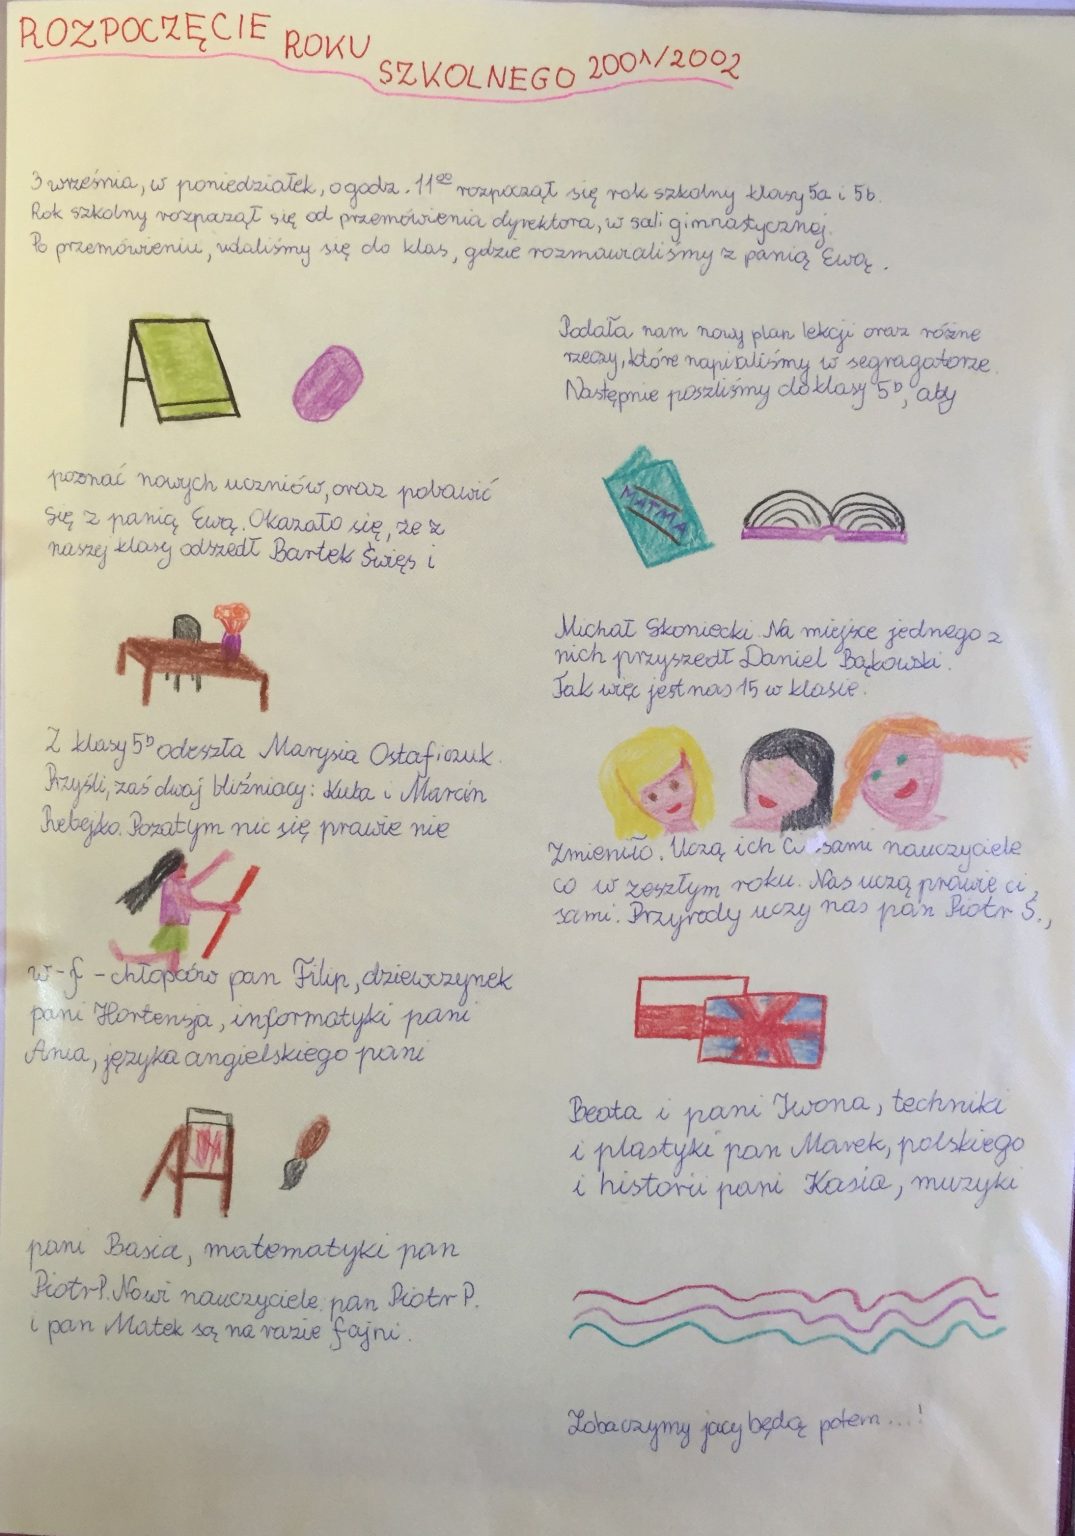 ROZPOCZĘCIE ROKU SZKOLNEGO 2001/2002
3 września, w poniedziałek, o godz. 11⁰⁰ rozpoczął się rok szkolny klasy 5a i 5b.
Rok szkolny rozpoczął się od przemówienia dyrektora, w sali gimnastycznej.
Po przemówieniu, udaliśmy się do klas, gdzie rozmawialiśmy z panią Ewą.
Podała nam nowy plan lekcji oraz różne
rzeczy, które napisaliśmy w segragatorze.
Następnie poszliśmy do klasy 5b, aby
MATMA
poznać nowych uczniów, oraz pobawić
się z panią Ewą. Okazało się, że z
naszej klasy odszedł Bartek Święs i
Michał Skoniecki. Na miejsce jednego z
nich przyszedł Daniel Bąkowski.
Tak więc jest nas 15 w klasie.
Z klasy 5b odeszła Marysia Ostaficzuk.
Przyśli, zaś dwaj bliźniacy: Kuba i Marcin
Rebejko. Pozatym nic się prawie nie
zmieniło. Uczą ich ci sami nauczyciele
co w zeszłym roku. Nas uczą prawie ci
sami. Przyrody uczy nas pan Piotr S.,
w-f - chłopców pan Filip, dziewczynek
pani Hortensja, informatyki pani
Ania, języka angielskiego pani
Beata i pani Iwona, techniki
i plastyki pan Marek, polskiego
i historii pani Kasia, muzyki
pani Basia, matematyki pan
Piotr P. Nowi nauczyciele: pan Piotr P.
i pan Matek są na razie fajni.
Zobaczymy jacy będą potem...!